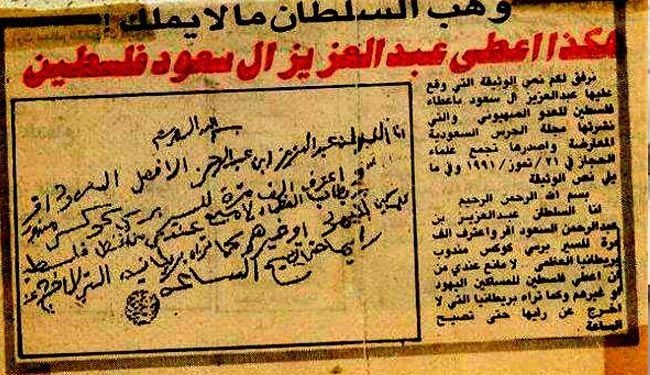 وهب السلطان مالايملك !
هكذا اعطى عبدالعزيز آل سعود فلسطين
نرفق لكم نص الوثيقة التي وقع
عليها عبدالعزيز آل سعود باعطاء
فلسطين للعدو الصهيوني والتي
نشرتها مجلة الحرس السعودية
المعارضة واصدرها تجمع علماء
الحجاز في ٢١/تموز/١٩٩١ وفي ما
يلي نص الوثيقة
بسم الله الرحمن الرحيم
انا السلطان عبدالعزيز بن
عبدالرحمن السعود اقر واعترف الف
مرة للسير برسي كوكس مندوب
بريطانيا العظمى لا مانع عندي من
ان اعطي فلسطين للمساكين اليهود
او غيرهم وكما تراه بريطانيا التي لا
اخرج عن رايها حتى تصيح
الساعة
انا السلطان عبدالعزيز عبدالرحمن السعود اقر
واعترف الف مرة للسير برسي كوكس مندوب
بريطانيا العظمى لا مانع عندي فلسطين
او غيرهم كما تراه بريطانيا التي لا اخرج
الساعة